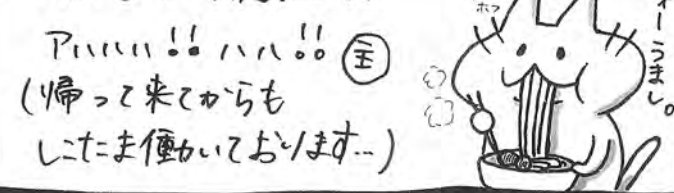 アハハハハ!! ハハハ!! 主
(帰って来てからも
しこたま働いております…)
ホフ
ーうまし。